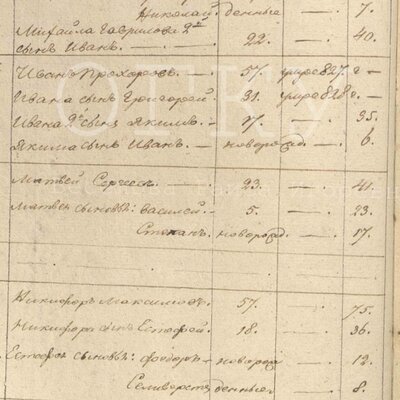 Николай денные 7.
Михайла Гаврилова 2й
сынъ Иванъ. — 22. — 40.
Иванъ Прохоровъ. 57. умре 827 г —
Ивана сынъ Григорей 31. умре 828 г. —
Ивана 2й сынъ Якимъ. — 17. — 35.
Якима сынъ Иванъ. — новорожд. — 6.
Матвей Сергеевъ — 23. — 41.
Матвея сыновья: Василей. — 5. — 23.
Степанъ. новорожд. — 17.
Никифоръ Максимовъ. 57. — 75.
Никифора сынъ Естафей. 18. — 36.
Естафея сыновья: Фиодоръ — новорож — 12.
Селиверстъ денные — 8.